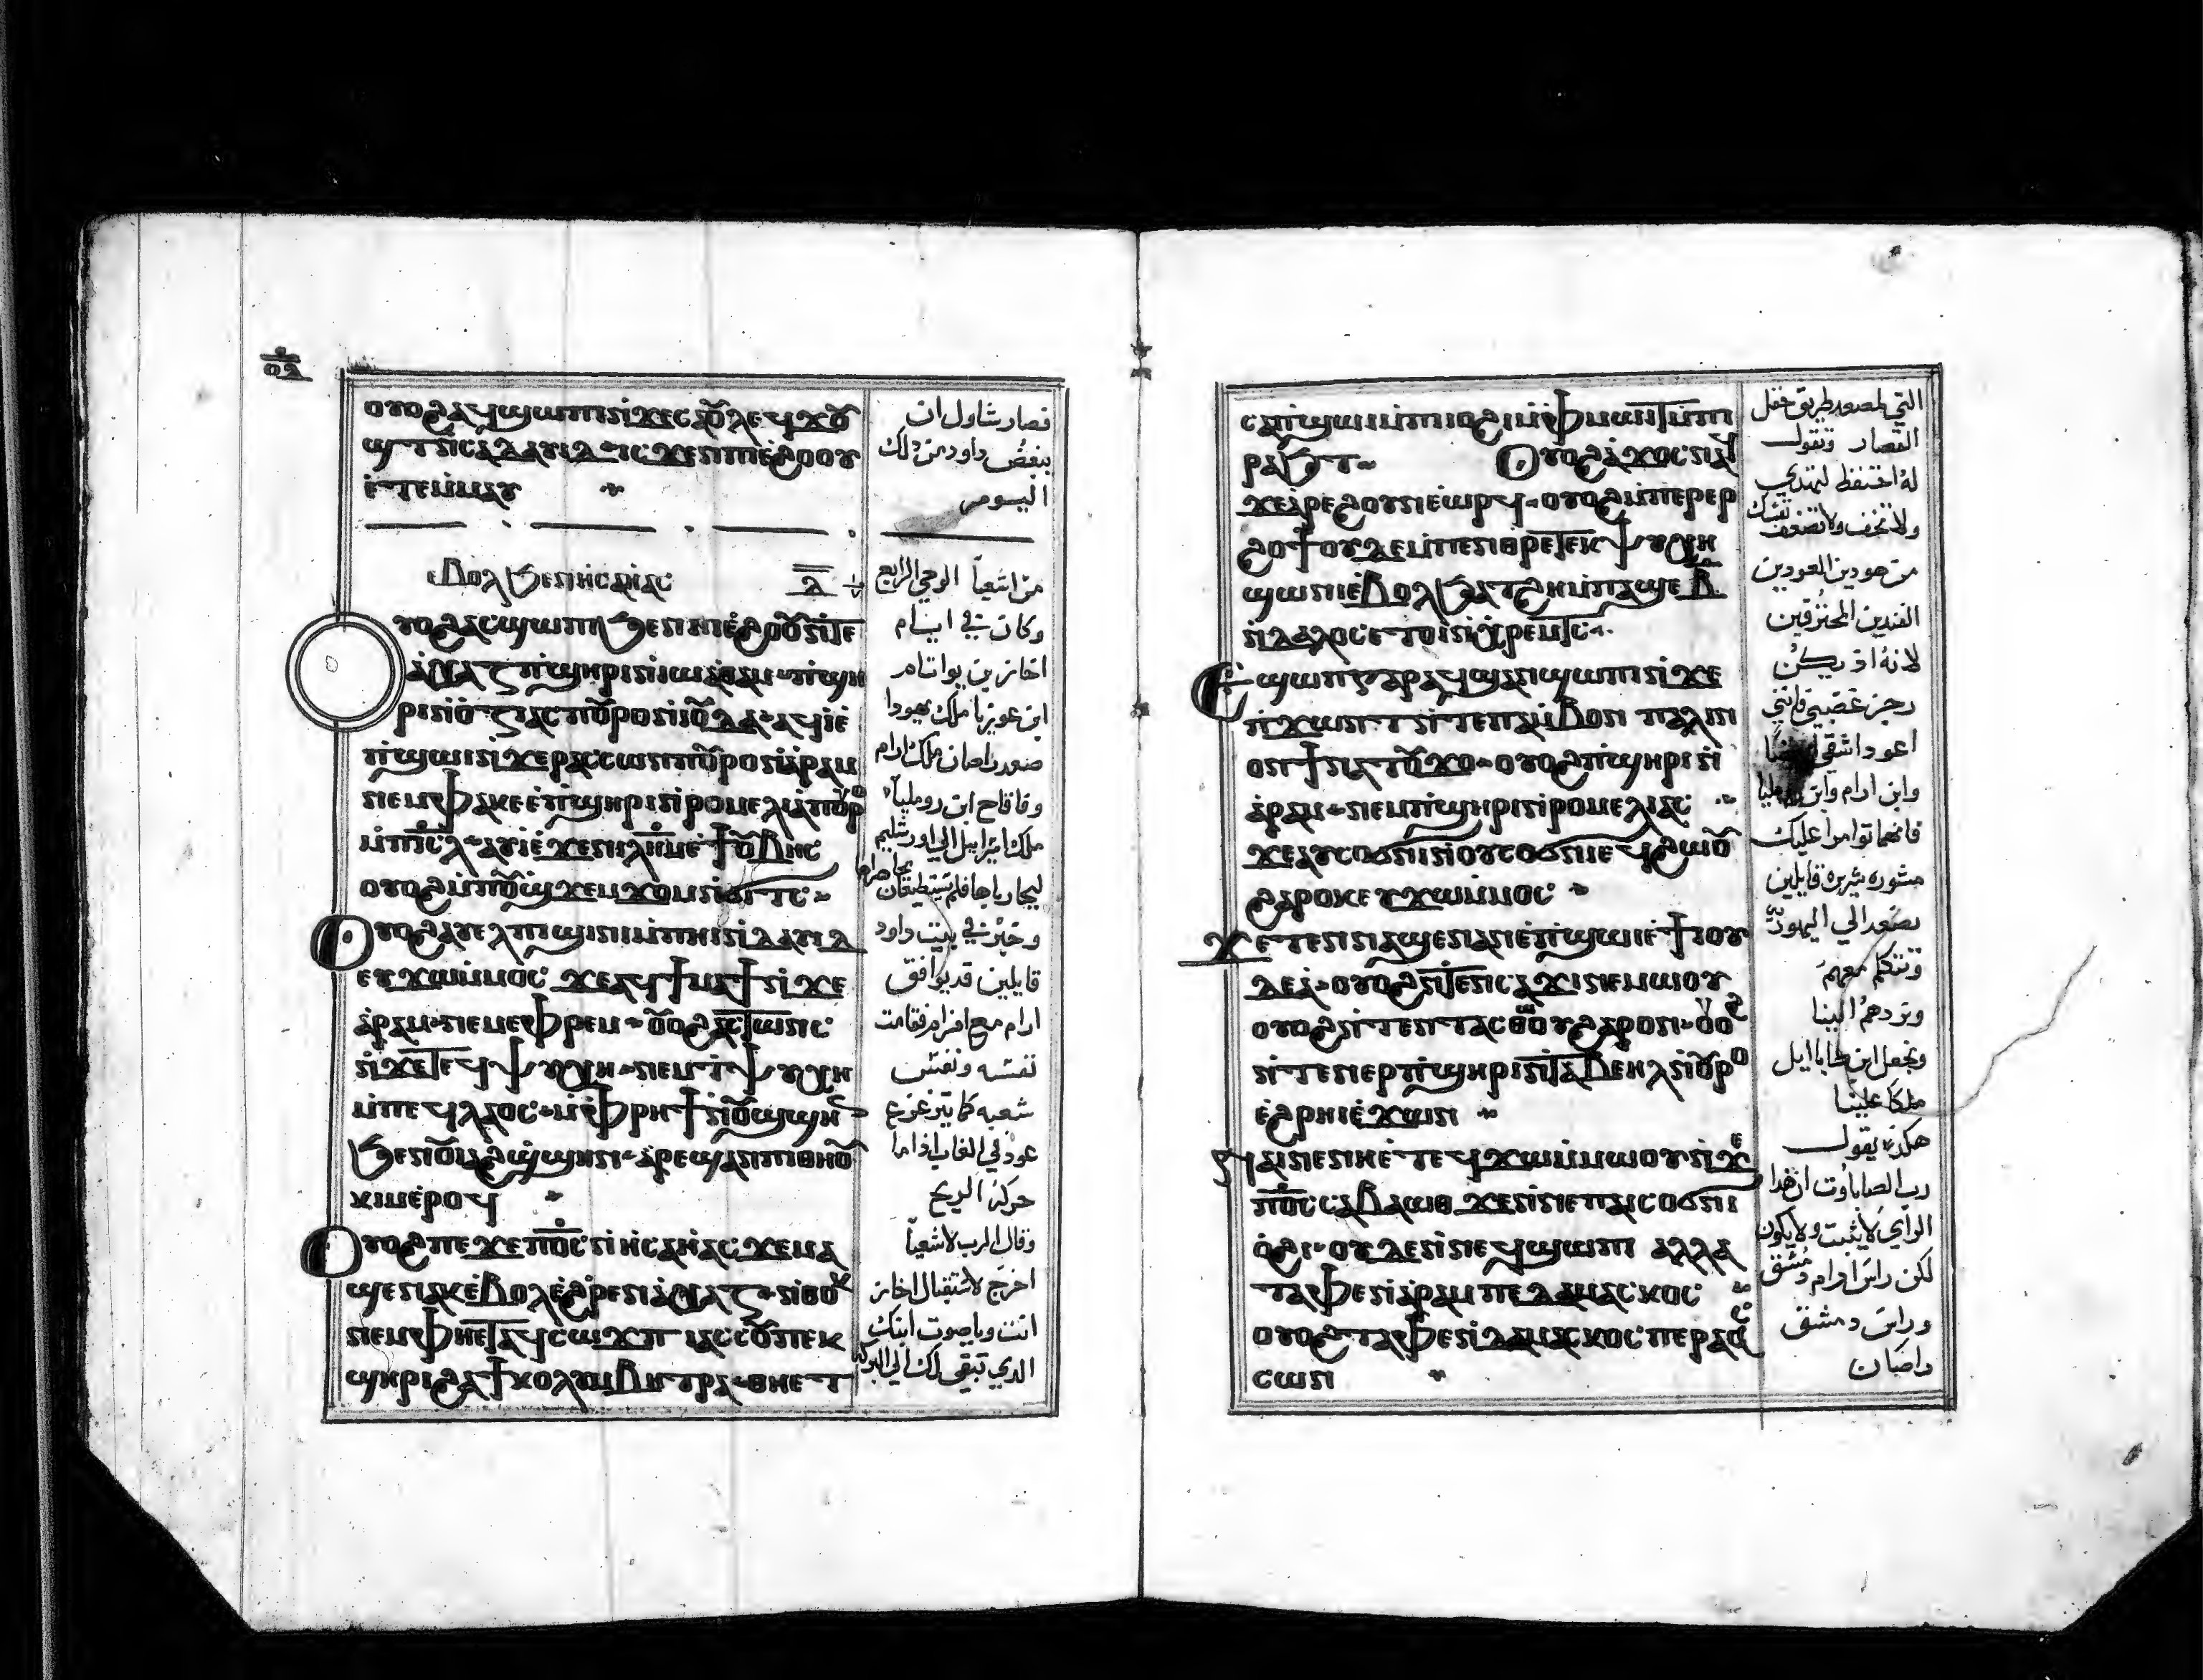 ⲟⲩⲟϩ ⲁϥϣⲱⲡⲓ ⲛ̇ϫⲉ ⲥⲁⲟⲩⲗ ⲉϥϫⲟⲩ
ϣⲧ ⲛ̇ⲥⲁ ⲇⲁⲩⲓⲇ ⲓⲥϫⲉⲛ ⲡⲓⲉ̇ϩⲟⲟⲩ
ⲉ̇ⲧⲉⲙⲙⲁⲩ
ⲉⲃⲟⲗ ϧⲉⲛ ⲏⲥⲁⲓⲁⲥ
ⲟⲩⲟϩ ⲁⲥϣⲱⲡⲓ ϧⲉⲛ ⲛⲓⲉ̇ϩⲟⲟⲩ ⲛ̇ⲧⲉ
ⲁ̇ⲭⲁⲍ ⲡ̇ϣⲏⲣⲓ ⲛ̇ⲓⲱⲁⲑⲁⲙ ⲡ̇ϣⲏ
ⲣⲓ ⲛ̇ⲟⲍⲓⲁⲥ ⲡⲟⲩⲣⲟ ⲛ̇ⲓⲟⲩⲇⲁ ⲁϥⲓ̇ ⲉ̇
ⲡ̇ϣⲱⲓ ⲛ̇ϫⲉ ⲣⲁⲥⲥⲱⲛ ⲡⲟⲩⲣⲟ ⲛ̇ⲁⲣⲁⲙ
ⲛⲉⲙ ⲫⲁⲕⲉⲉ̇ ⲡ̇ϣⲏⲣⲓ ⲛ̇ⲣⲟⲙⲉⲗⲓⲁ ⲡⲟⲩⲣⲟ
ⲙ̇ⲡⲓⲥ̅ⲗ̅ ⲁⲩⲓ̇ ⲉ̇ϫⲉⲛ ⲓⲗⲏⲙ ⲉ̇ϯⲟⲩⲃⲏⲥ
ⲟⲩⲟϩ ⲙ̇ⲡⲟⲩϣϫⲉⲙϫⲟⲙ ⲛ̇ϭⲓⲧⲥ
ⲟⲩⲟϩ ⲁⲩⲉⲗ ⲡⲓϣⲓⲛⲓ ⲙ̇ⲡⲏⲓ ⲛ̇ⲇⲁⲩⲓⲇ
ⲉⲩϫⲱ ⲙ̇ⲙⲟⲥ ϫⲉ ⲁϥϯⲙⲁϯ ⲛ̇ϫⲉ
ⲁ̇ⲣⲁⲙ ⲛⲉⲙ ⲉⲫⲣⲉⲙ ⲟⲩⲟϩ ⲁⲥⲧⲱⲛⲥ
ⲛ̇ϫⲉ ⲧⲉϥⲯⲩⲭⲏ ⲛⲉⲙ ϯⲯⲩⲭⲏ
ⲙ̇ⲡⲉϥⲗⲁⲟⲥ ⲙ̇ⲫⲣⲏϯ ⲛ̇ⲟⲩϣϣⲏⲛ
ϧⲉⲛ ⲟⲩⲓⲁϩϣ̇ϣⲏⲛ ⲁ̇ⲣⲉϣⲁⲛ ⲡⲓⲑⲏⲟⲩ
ⲕⲓⲙ ⲉ̇ⲣⲟϥ
ⲟⲩⲟϩ ⲡⲉϫⲉ ⲡⲟ̅ⲥ̅ ⲛ̇ⲏⲥⲁⲏ̇ⲁⲥ ϫⲉ ⲙⲁ
ϣⲉⲛⲁⲕ ⲉ̇ⲃⲟⲗ ⲉ̇ϩⲣⲉⲛ ⲁ̇ⲭⲁⲍ ⲛ̇ⲑⲟⲕ
ⲛⲉⲙ ⲫⲏⲉⲧⲁϥⲥⲱϫⲡ ⲓⲁⲥⲥⲟⲩⲃ ⲡⲉⲕ
ϣⲏⲣⲓ ϩⲁ ϯⲕⲟⲗⲩⲙⲃⲏⲧⲣⲁ ⲑⲏⲉⲧ
فصار شاول ان
يبغض داود من ذلك
اليوم
من اشعيا الوحي الرابع
وكان في ايام
احاز بن يواتام
ابن عوزيا ملك يهودا
صعد راصان ملك ارام
وفاقاح ابن روميليا
ملك اسرايل الي اورشليم
ليحارباها فلم يستطيعان
وخبر في بيت داود
قايلين قد يوافق
ارام مع افرام فقامت
نفسه ونفس
شعبه كما تتزعزع
عود في الغاب اذا ما
حركه الريح
وقال الرب لاشعيا
اخرج لاستقبال احاز
انت وياصوب ابنك
الذي تبقي لك الي البركه
ⲥⲁⲡ̇ϣⲱⲓ ⲙ̇ⲡⲓⲙⲱⲓⲧ
ⲣⲁϧⲧ ⲟⲩⲟϩ ⲁ̇ϫⲟⲥ ⲛⲁϥ
ϫⲉ ⲁ̇ⲣⲉϩ ⲟⲩⲛ ⲉ̇ⲱⲣϥ ⲟⲩⲟϩ ⲙ̇ⲡⲉⲣⲉⲣ
ϩⲟϯ ⲟⲩⲇⲉ ⲙ̇ⲡⲉⲛⲑⲣⲉ ⲧⲉⲕⲯⲩⲭⲏ
ϣⲱⲛⲓ ⲉ̇ⲃⲟⲗ ϧⲁⲧϩⲏ ⲙ̇ⲡⲁϣⲉ ⲃ̅
ⲛ̇ⲇⲁⲗⲟⲥ ⲉⲧⲟⲓ ⲛ̇ⲭⲣⲉⲙⲧⲥ
ⲉϣⲱⲡ ⲅⲁⲣ ⲁϥϣⲁⲛϣⲱⲡⲓ ⲛ̇ϫⲉ
ⲛ̇ϫⲱⲛⲧ ⲛ̇ⲧⲉ ⲡⲁⲙ̇ⲃⲟⲛ ⲡⲁⲗⲓⲛ
ⲟⲛ ϯⲛⲁⲧⲟⲩϫⲟ ⲟⲩⲟϩ ⲡ̇ϣⲏⲣⲓ ⲛ̇
ⲁ̇ⲣⲁⲙ ⲛⲉⲙ ⲡ̇ϣⲏⲣⲓ ⲛ̇ⲣⲟⲙⲉⲗⲓⲁⲥ
ϫⲉ ⲁⲩⲥⲟϭⲛⲓ ⲛ̇ⲟⲩⲥⲟϭⲛⲓ ⲉϥϩⲱⲟⲩ
ϩⲁⲣⲟⲕ ⲉⲩϫⲱ ⲙ̇ⲙⲟⲥ
ϫⲉ ⲧⲉⲛⲛⲁϣⲉⲛⲁⲛ ⲉ̇ⲡ̇ϣⲱⲓ ⲉ̇ϯⲓⲟⲩ
ⲇⲉⲁ̇ ⲟⲩⲟϩ ⲛ̇ⲧⲉⲛⲥⲁϫⲓ ⲛⲉⲙⲱⲟⲩ
ⲟⲩⲟϩ ⲛ̇ⲧⲉⲛⲧⲁⲥⲑⲱⲟⲩ ϩⲁⲣⲟⲛ ⲟⲩⲟϩ
ⲛ̇ⲧⲉⲛⲉⲣ ⲡ̇ϣⲏⲣⲓ ⲛ̇ⲧⲁⲃⲉⲏⲗ ⲛ̇ⲟⲩⲣⲟ
ⲉ̇ϩⲣⲏⲓ ⲉ̇ϫⲱⲛ
ϥⲁⲓ ⲛⲉ ⲛⲏ ⲉ̇ⲧⲉϥϫⲱ ⲙ̇ⲙⲱⲟⲩ ⲛ̇ϫⲉ
ⲡⲟ̅ⲥ̅ ⲥⲁⲃⲁⲱⲑ ϫⲉ ⲛ̇ⲛⲉ ⲡⲁⲓⲥⲟϭⲛⲓ
ⲟ̇ϩⲓ ⲟⲩⲇⲉ ⲛ̇ⲛⲉϥϣⲱⲡⲓ ⲁⲗⲗⲁ
ⲧⲁⲫⲉ ⲛ̇ⲁⲣⲁⲙ ⲡⲉ ⲇⲁⲙⲁⲥⲕⲟⲥ
ⲟⲩⲟϩ ⲧⲁⲫⲉ ⲛ̇ⲇⲁⲙⲁⲥⲕⲟⲥ ⲡⲉ ⲣⲁⲥ
ⲥⲱⲛ
التي لمصعد طريق حقل
القصار وتقول
له احتفظ لتهدي
ولا تخف ولا تضعف نفسك
من عودين العودين
المحترقين
لانه اذ يكن
رجز غضبي فانني
اعود اشفي
وابن ارام وابن روميليا
فانهما توامرا عليك
مشوره شريره قايلين
نصعد الي اليهوديه
ونتكلم معهم
ونردهم الينا
ونجعل ابن طاباايل
ملكا علينا
هكذا يقول
رب الصاباوت ان هذا
الراي لا يثبت ولا يكون
لكن راس ارام دمشق
وراس دمشق
راصان